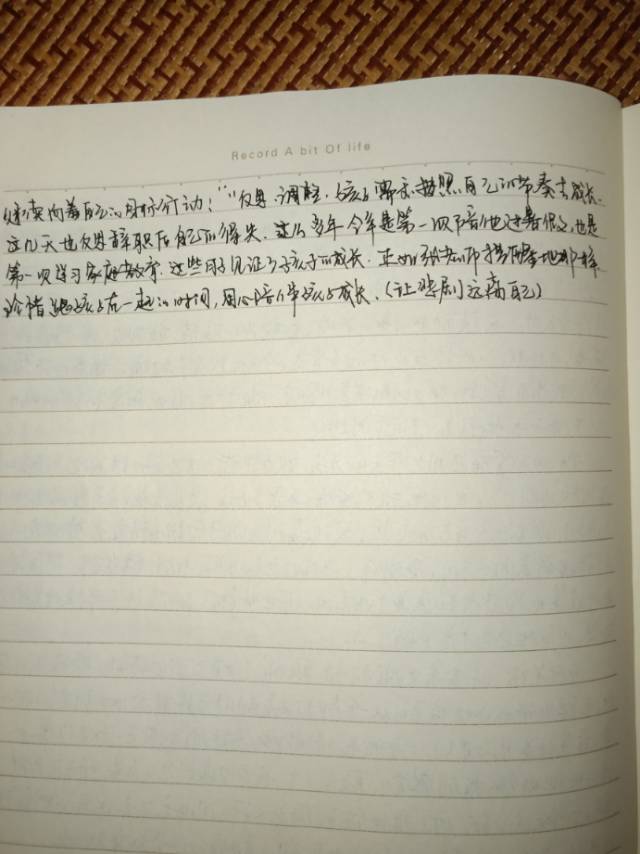 Record A bit Of life
继续向着自己的目标行动！”“反思、调整，孩子需求按照自己的节奏去成长
这几天也反思辞职后自己的得失。这么多年今年是第一次陪他过暑假，也是
第一次学习家庭教育。这些日子见证了孩子的成长。正如张老师
珍惜跟孩子在一起的时间，用心陪伴孩子成长。（让悲剧远离自己）